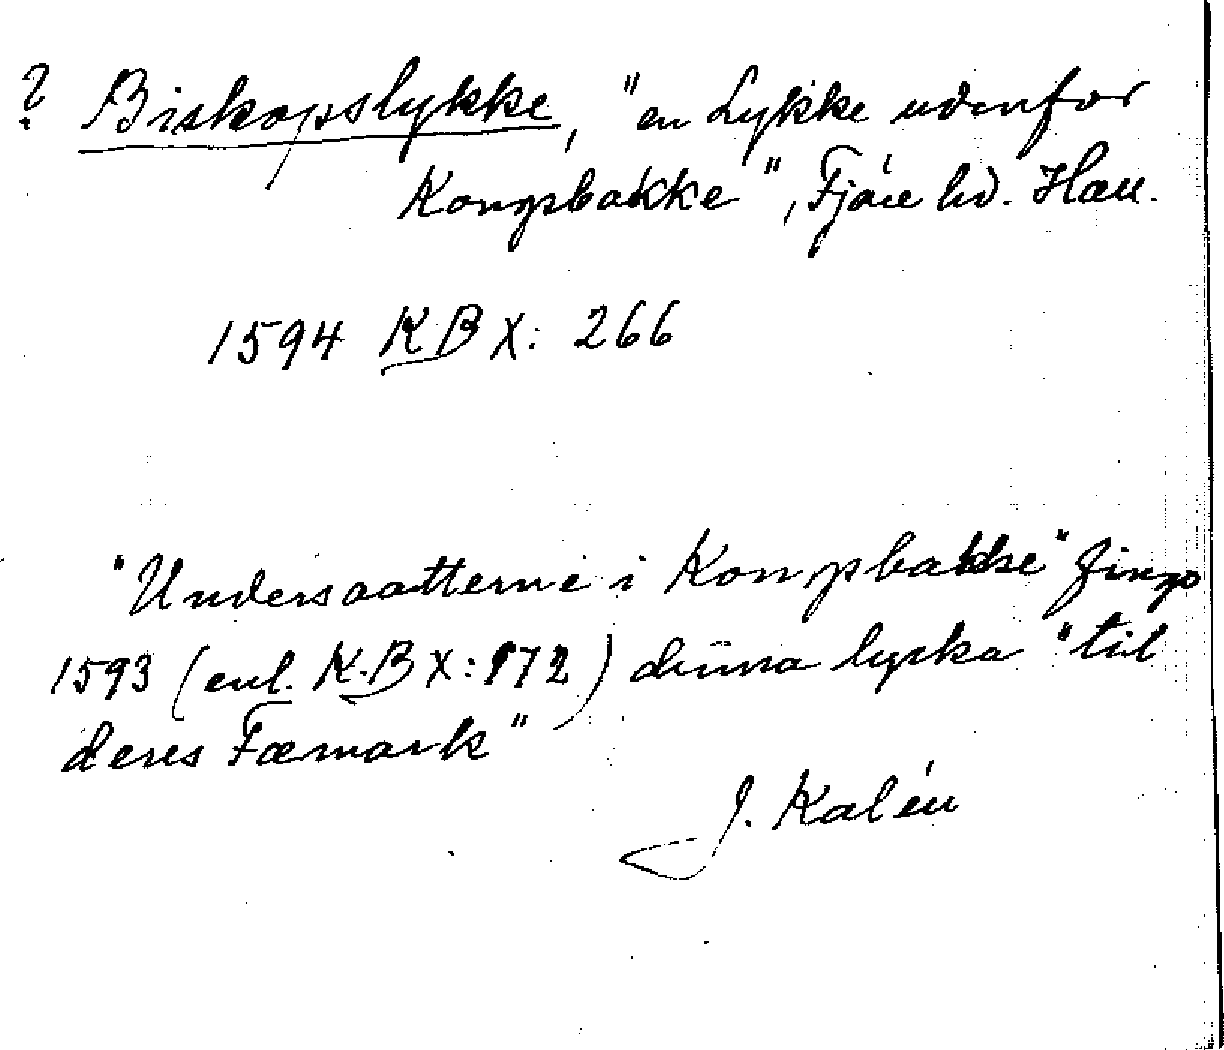 ? Biskopslykke, "en Lykke udenfor
Kongsbakke", Fjäre hd. Hall.
1594 KB X: 266
"Undersaatterne i Kongsbakke" fingo
1593 (enl. K.B X: 172) denna lycka "til
deres Fæmark"
J. Kalén